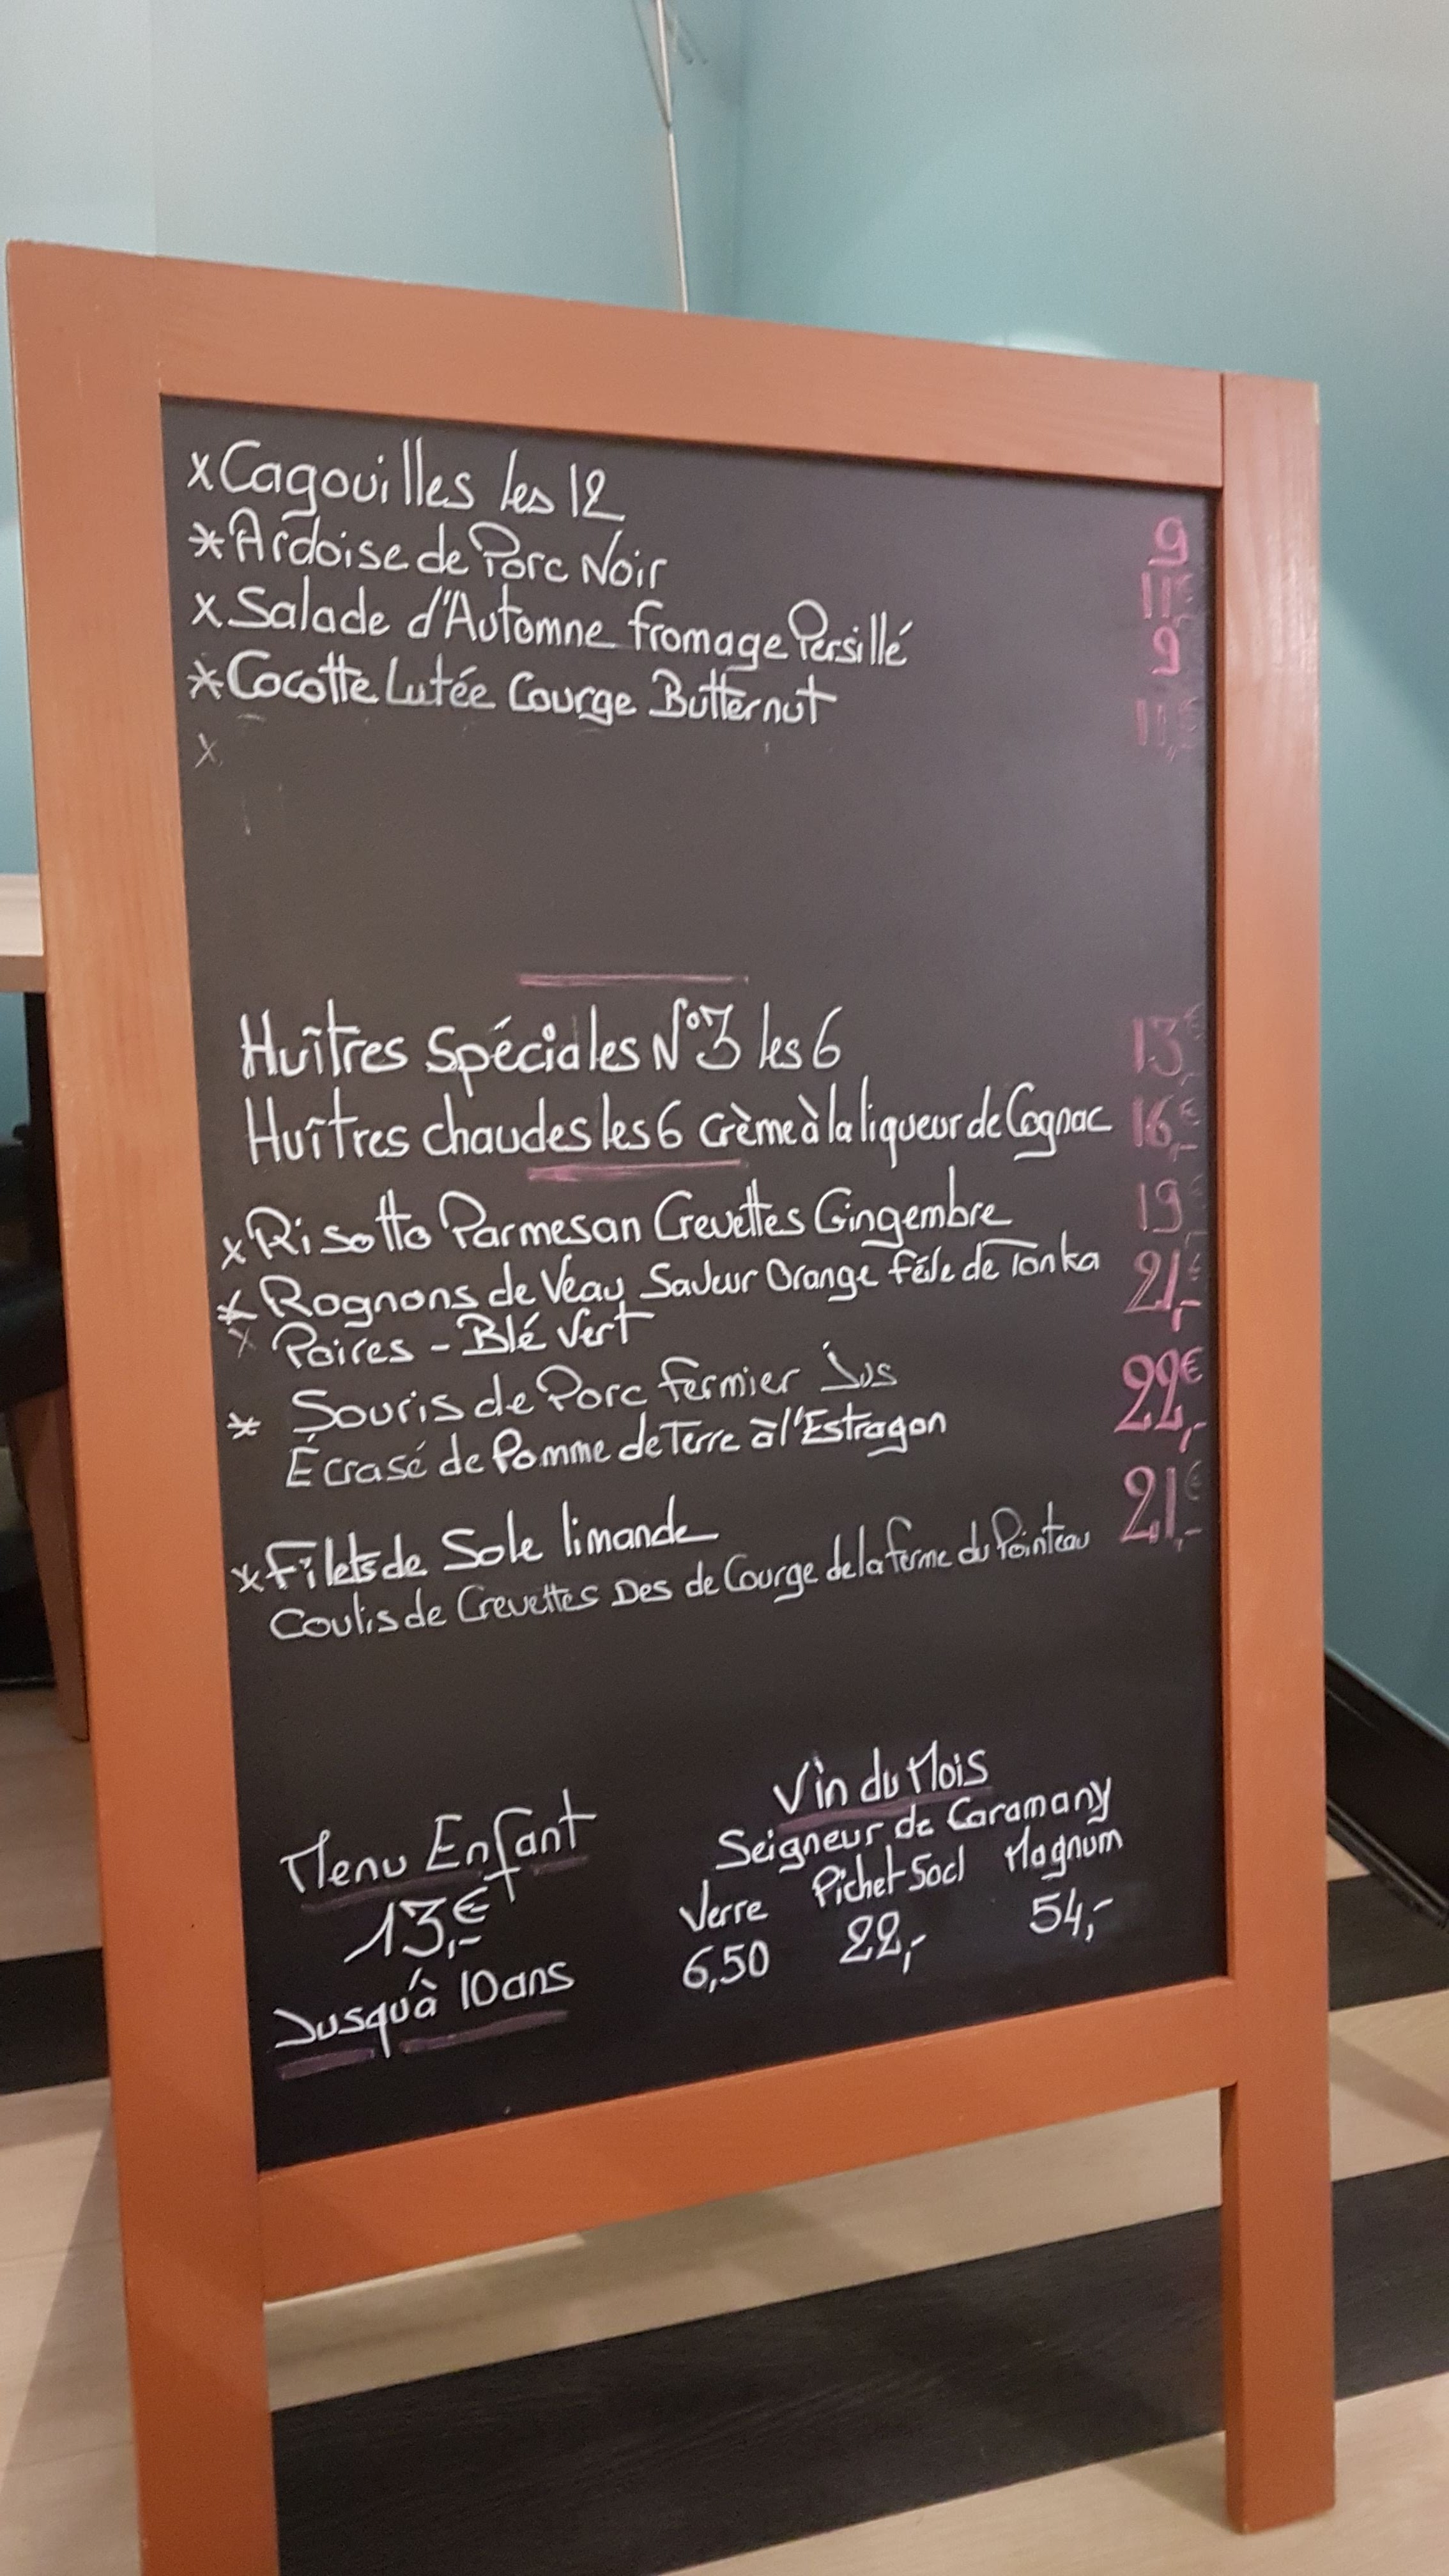 x Cagouilles les 12 9
* Ardoise de Porc Noir 11€
x Salade d'Automne fromage Persillé 9
* Cocotte Lutée Courge Butternut 11,€
x
Huîtres Spéciales N°3 les 6 13,€
Huîtres chaudes les 6 Crème à la liqueur de Cognac 16,€
x Risotto Parmesan Crevettes Gingembre 19
x Rognons de Veau Saveur Orange fève de Tonka 21,€
x Poires - Blé Vert
* Souris de Porc fermier Jus 22,€
Écrasé de Pomme de Terre à l'Estragon
* Filets de Sole limande 21,€
Coulis de Crevettes Des de Courge de la ferme du Pointeau
Menu Enfant
13,€
Jusqu'à 10 ans
Vin du Mois
Seigneur de Caramany
Verre Pichet 50cl Magnum
6,50 22,- 54,-